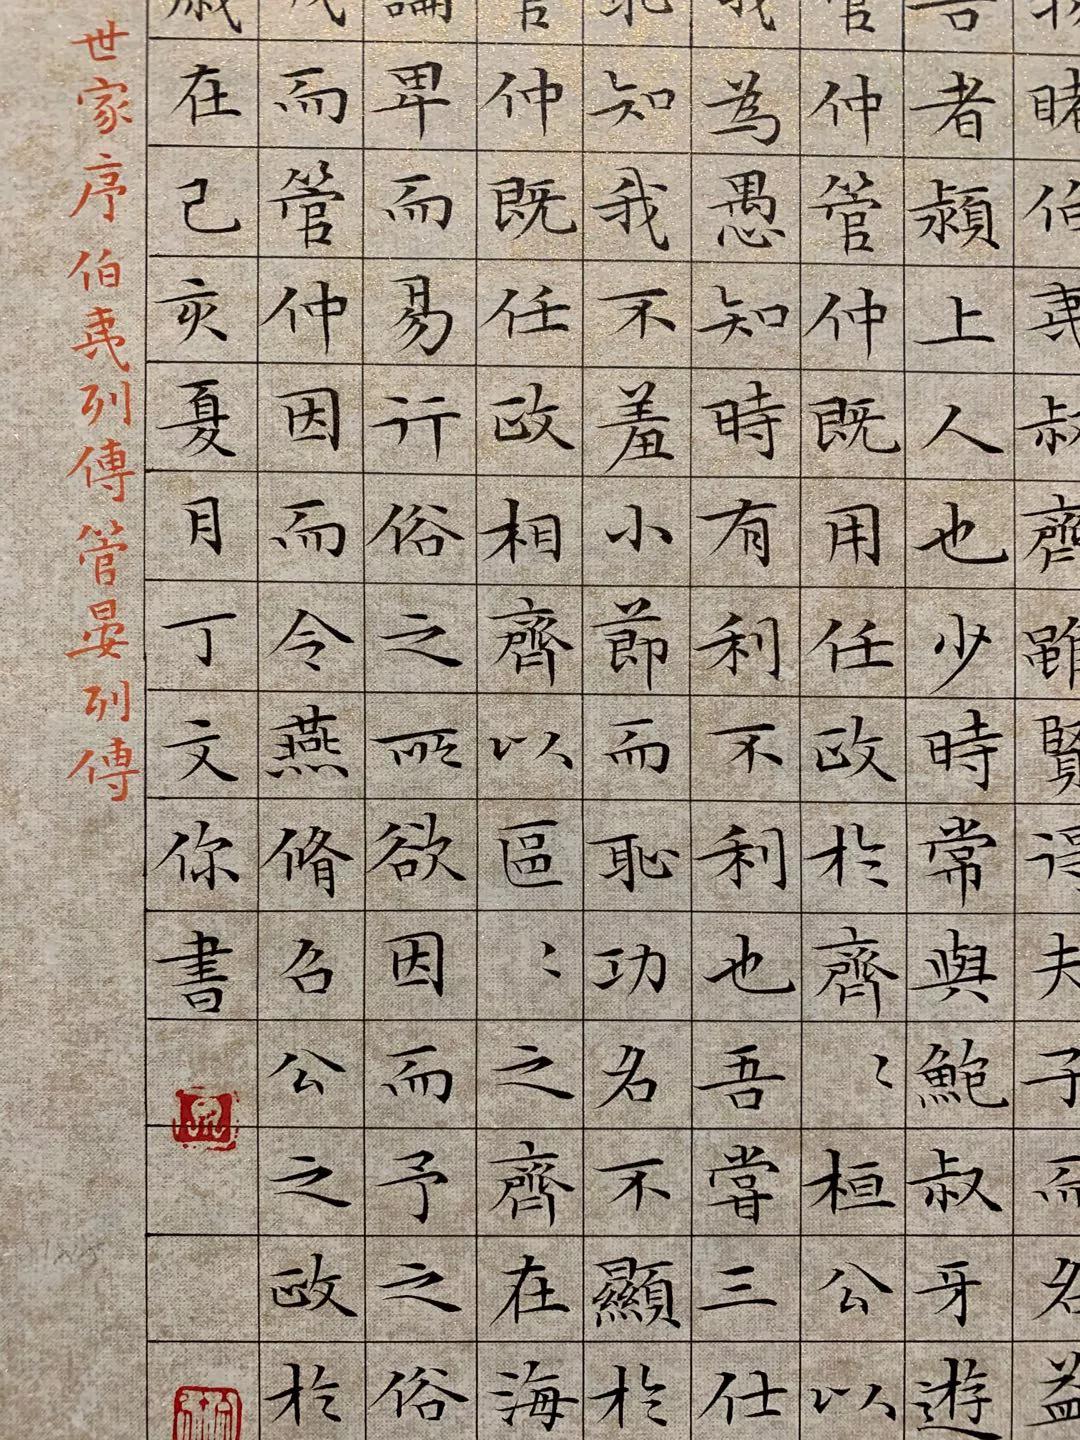 睹伯夷叔齊雖賢得夫子而名益
吾者潁上人也少時常與鮑叔牙遊
管仲管仲既用任政於齊〻桓公以
我為愚知時有利不利也吾嘗三仕
知我不羞小節而恥功名不顯於
管仲既任政相齊以區〻之齊在海
論卑而易行俗之所欲因而予之俗
而管仲因而令燕脩召公之政於
歲在己亥夏月丁文你書
世家序伯夷列傳管晏列傳